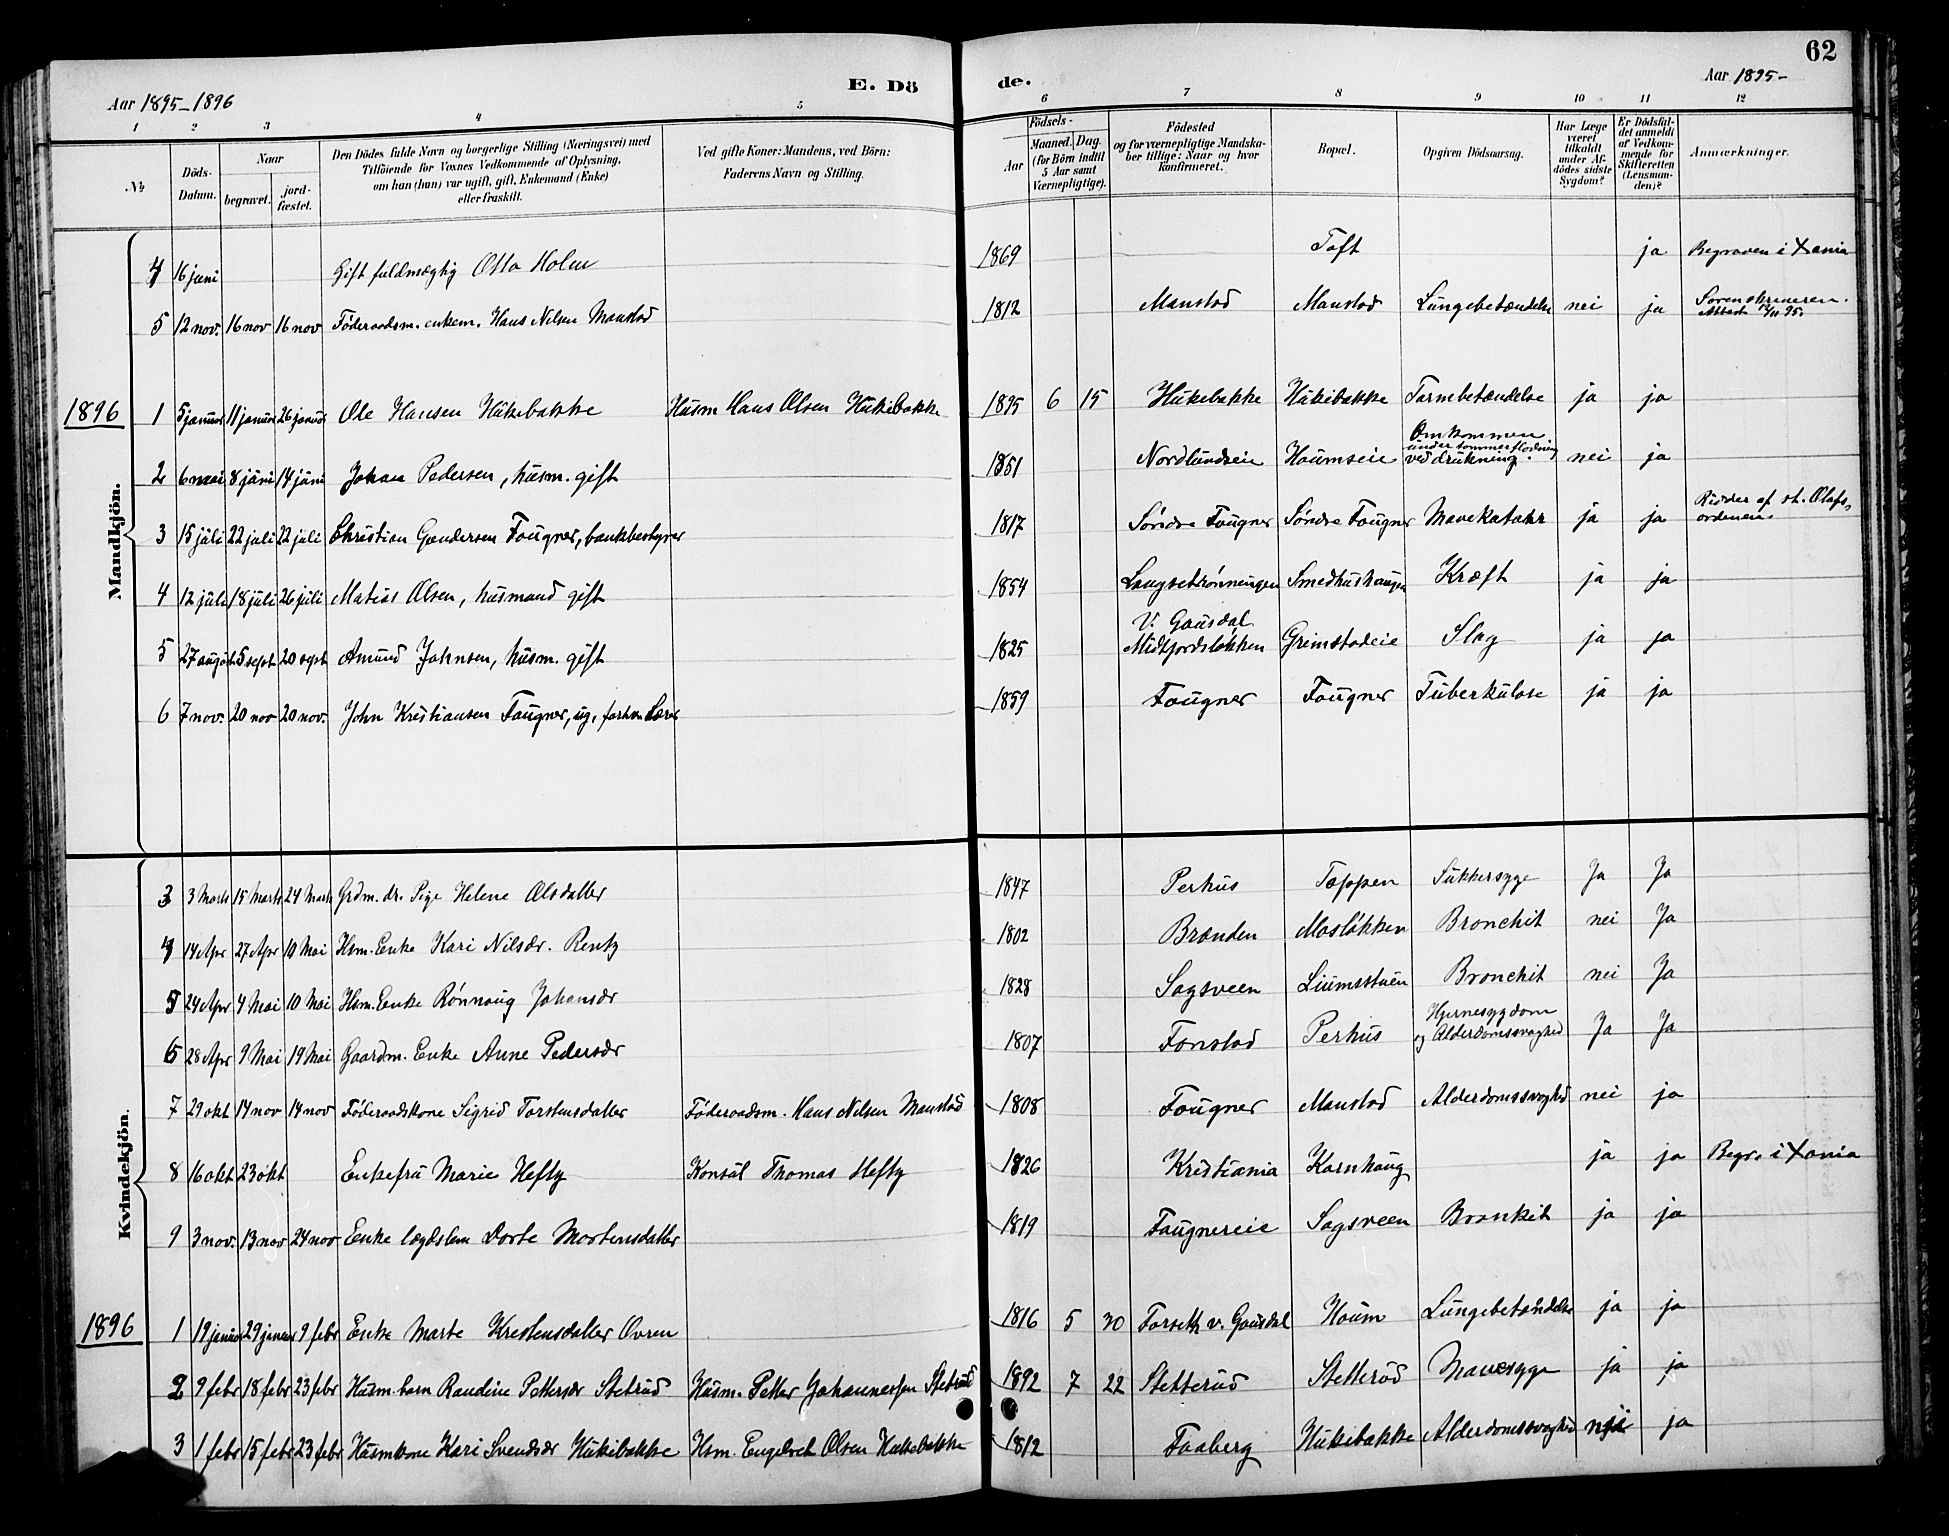 62
Aar 1895-1896
E. Dö
de.
Aar 1895-
1 2 3 4 5 6 7 8 9 10 11 12
No
Döds-Datum.
Naar
begravet.
jord-fæstet.
Den Dödes fulde Navn og borgerlige Stilling (Næringsvei) med
Tilföiende for Voxnes Vedkommende af Oplysning,
om han (hun) var ugift, gift, Enkemand (Enke)
eller fraskilt.
Ved gifte Koner: Mandens, ved Börn:
Faderens Navn og Stilling.
Födsels-
Aar
Maaned. Dag.
(for Börn indtil
5 Aar samt
Værnepligtige).
Födested
og for værnepligtige Mandska-
ber tillige: Naar og hvor
konfirmeret.
Bopæl.
Opgiven Dödsaarsag.
Har Læge
været
tilkaldt
under Af-
dödes sidste
Sygdom?
Er Dödsfal-
det anmeldt
af Vedkom-
mende for
Skifteretten
(Lensman-
den)?
Anmærkninger.
Mandkjön.
4 16 juni Gift fuldmægtig Otto Holm 1869 Toft ja Begraven i Xania
5 12 nov. 16 nov 16 nov Föderaadsm. enkem. Hans Nilsen Manstad 1812 Manstad Manstad Lungebetændelse nei ja Sorenskriveren.
1896
1 5 januar 11 januar 26 januar Ole Hansen Hukebakke Husm Hans Olsen Hukebakke 1895 6 15 Hukebakke Hukibakke Tarmbetændelse ja ja
2 6 mai 8 juni 14 juni Johan Pedersen, husm. gift 1851 Nordlundseie Houmseie Omkommen
under tommerflodning
ved drukning. nei ja
3 15 juli 22 juli 22 juli Christian Gundersen Fougner, bankbestyrer 1817 Söndre Fougner Söndre Fougner Mavekatahr ja ja Ridder af st. Olafs,
ordenen.
4 12 juli 18 juli 26 juli Matias Olsen, husmand gift 1854 Langseterönningen Smedhushaugen Kræft ja ja
5 27 august 5 sept 20 sept Amund Johnsen, husm. gift 1825 V. Gausdal
Midtfjordslökken Grimstadeie Slag ja ja
6 7 nov. 20 nov 20 nov. John Kristiansen Fougner, ug, forhen Lærer 1859 Fougner Fougner Tuberkulose ja ja
Kvindekjön.
3 3 Marts 15 Marts 24 Marts Grdm. dr. Pige Helene Olsdatter 1847 Perhus Toppen Sukkersyge Ja Ja
4 14 Apr 27 Apr 10 Mai Hsm. Enke Kari Nilsdr. Rentz 1802 Brænden Moslökken Bronchit nei Ja
5 24 Apr 4 Mai 10 Mai Hsm. Enke Rönnaug Johansdr 1828 Sagsveen Liumsstuen Bronchit nei Ja
6 28 Apr 9 Mai 19 Mai Gaardm. Enke Anne Pedersdr 1807 Fonstad Perhus Hjernesygdom
og Alderdomssvaghed Ja Ja
7 29 okt 14 nov 14 nov Föderaadskone Sigrid Torstensdatter Föderaadsm. Hans Nilsen Manstad 1808 Fougner Manstad Alderdomssvaghed nei ja
8 16 okt 23 okt Enkefru Marie Hefty Konsul Thomas Hefty 1826 Kristiania Kornhaug ja ja Begr. i Xania
9 3 nov. 13 nov 24 nov Enke lægdslem Dorte Mortensdatter 1819 Fougnereie Sagsveen Bronkit ja ja
1896
1 19 januar 29 januar 9 febr Enke Marte Kristensdatter Ovren 1816 5 30 Forseth v. Gausdal Houm Lungebetændelse ja ja
2 9 febr 18 febr 23 febr Husm. barn Randine Pettersdr Stetrud Husm. Petter Johannessen Stetrud 1892 7 22 Stetterud Stetterud Mavesyge ja ja
3 1 febr 15 febr 23 febr Husmkone Kari Svendsdr Hukibakke Hsm. Engebret Olsen Hukebakke 1812 Faaberg Hukibakke Alderdomssvaghed nei ja